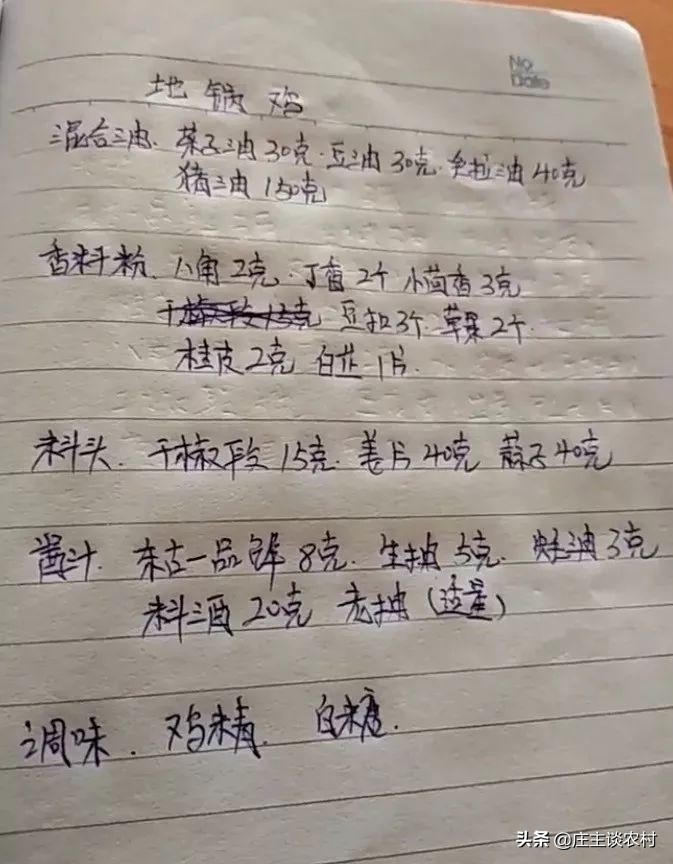 No
Date
地锅鸡
混合油. 菜子油30克. 豆油30克. 色拉油40克
猪油150克
香料粉. 八角2克. 丁香2个 小茴香3克
干椒段15克 豆扣3个. 草果2个.
桂皮2克 白芷1片.
料头. 干椒段15克. 姜片40克 蒜子40克
酱汁. 东古一品鲜8克. 生抽5克. 蚝油3克
料酒20克 老抽(适量)
调味. 鸡精. 白糖.
头条 @庄主谈农村